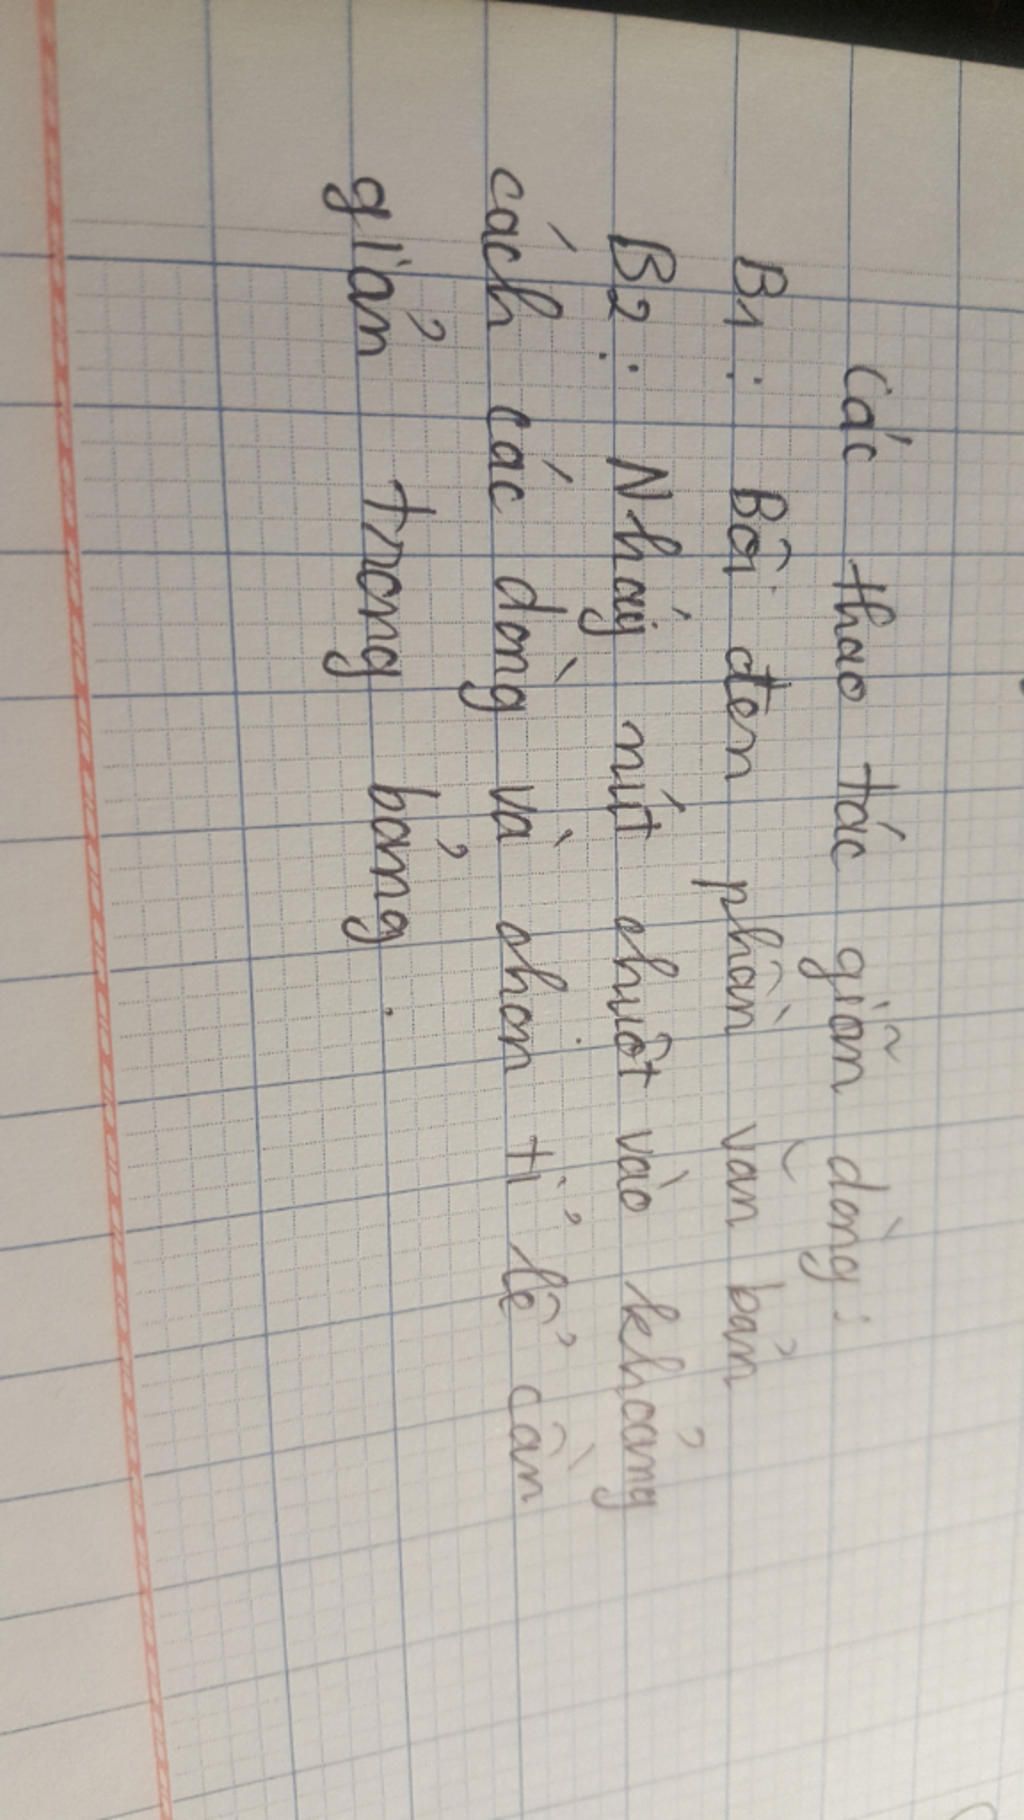 Các thao tác giãn dòng:
B1: Bôi đen phần văn bản
B2: Nháy nút chuột vào khoảng
cách các dòng và chọn tỉ lể cần
giản trong bảng.